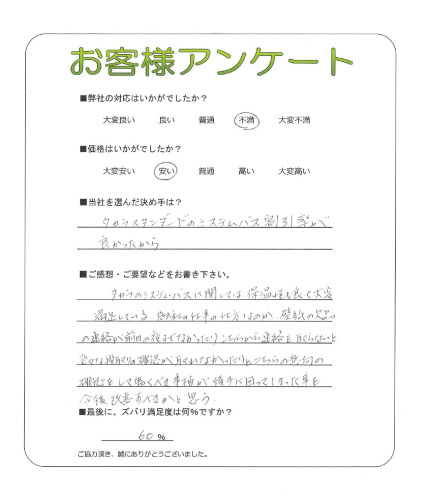 お客様アンケート
■弊社の対応はいかがでしたか？
大変良い 良い 普通 不満 大変不満
■価格はいかがでしたか？
大変安い 安い 普通 高い 大変高い
■当社を選んだ決め手は？
タカラスタンダードのシステムバス割引率が
良かったから
■ご感想・ご要望などをお書き下さい。
タカラのシステムバスに関しては保温性も良く大変
満足している 御社の仕事の仕方なのか、壁紙の欠品
の連絡が前日の夜までなかったり、こちらから連絡を取らないと
段取りの確認が取れなかったりと、こちらの意向の
確認をして働くべき事柄が後手に回ってしまった事を
今後改善すべきかと思う。
■最後に、ズバリ満足度は何％ですか？
60 %
ご協力頂き、誠にありがとうございました。